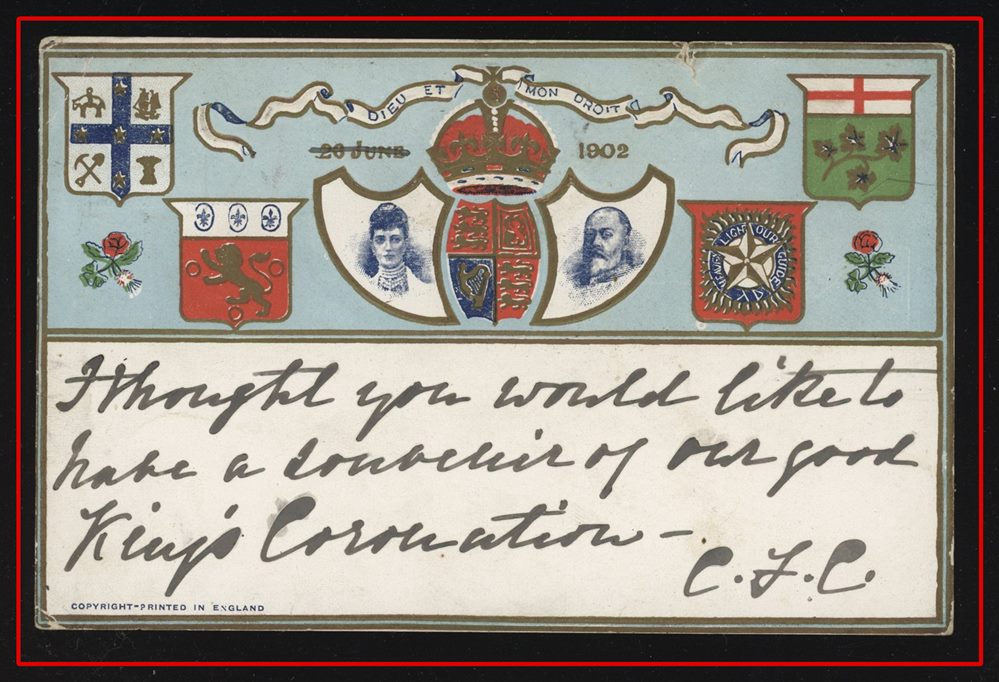 DIEU ET MON DROIT
26 JUNE 1902
HEAVEN'S LIGHT OUR GUIDE
I thought you would like to
have a souvenir of our good
King's Coronation –
C. F. C.
COPYRIGHT–PRINTED IN ENGLAND